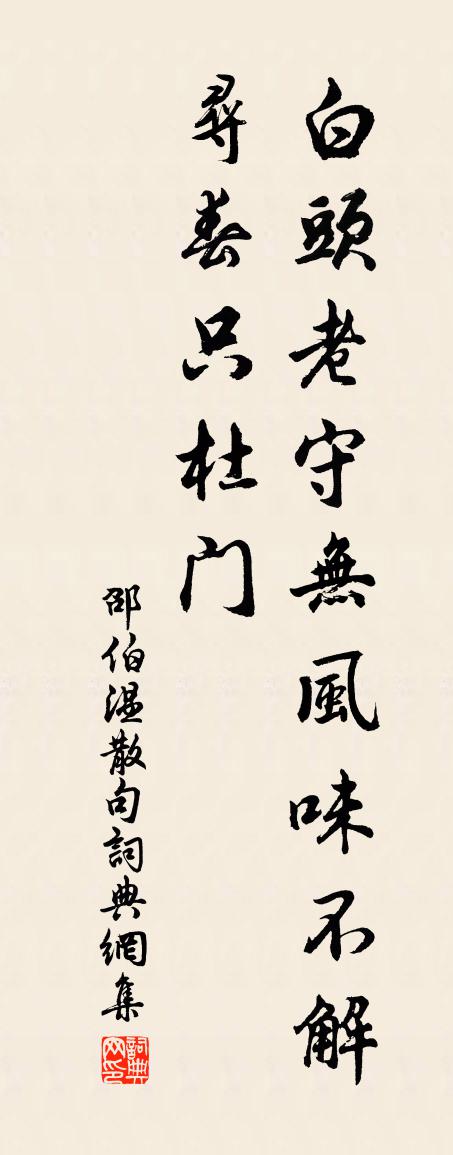 白頭老守無風味不解
尋春只杜門
邵伯温散句詞典網集
詞典网印